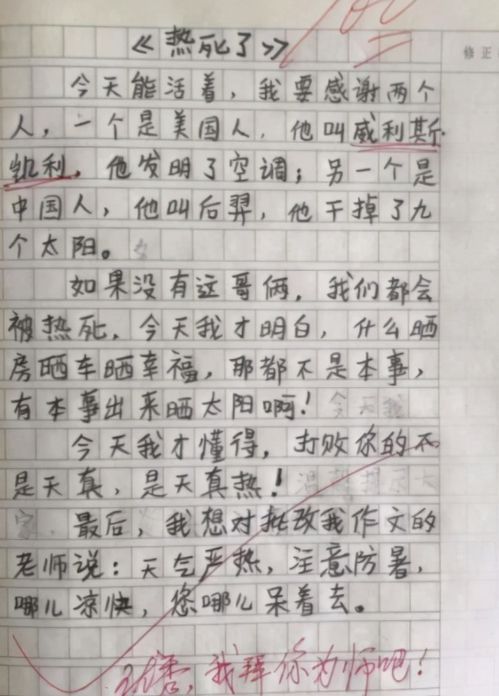 100
修正
《热死了》
今天能活着，我要感谢两个
人，一个是美国人，他叫威利斯·
凯利，他发明了空调；另一个是
中国人，他叫后羿，他干掉了九
个太阳。
如果没有这哥俩，我们都会
被热死，今天我才明白，什么晒
房晒车晒幸福，那都不是本事，
有本事出来晒太阳啊！
今天我才懂得，打败你的不
是天真，是天真热！
最后，我想对批改我作文的
老师说：天气严热，注意防暑，
哪儿凉快，您哪儿呆着去。
我拜你为师吧！